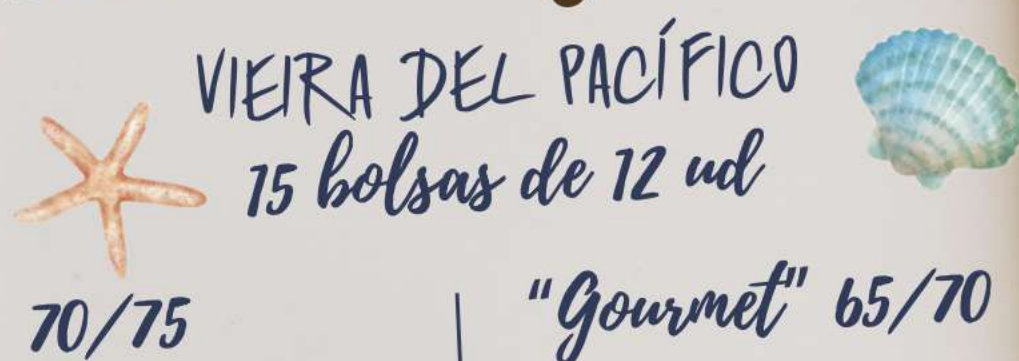 VIEIRA DEL PACÍFICO
15 bolsas de 12 ud
70/75
"Gourmet" 65/70